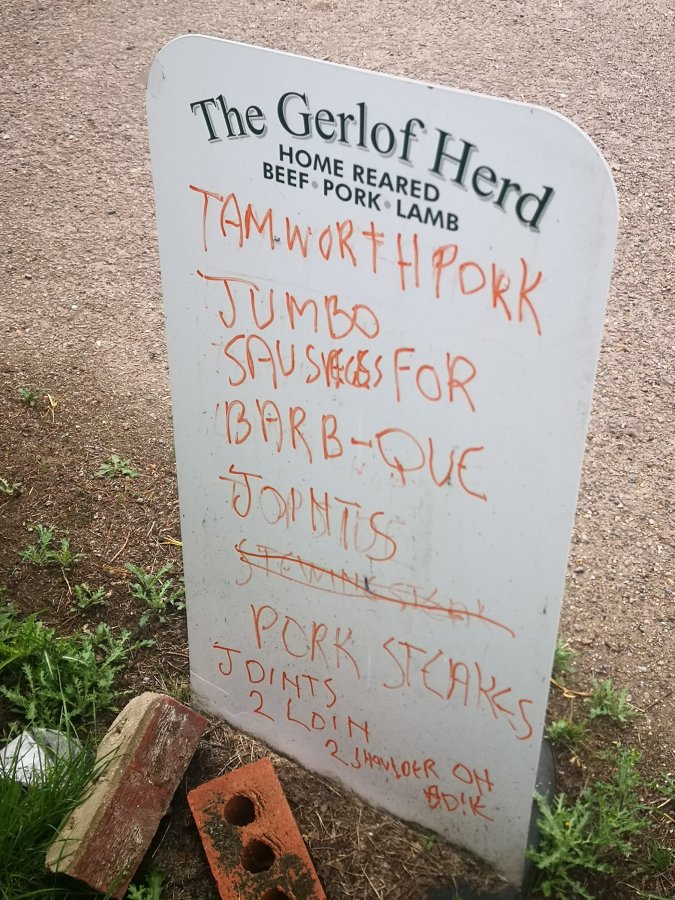 The Gerlof Herd
HOME REARED
BEEF • PORK • LAMB
TAMWORTH PORK
JUMBO
SAUSAGES FOR
BARB-QUE
PORK STEAKES
JOINTS
2 LOIN
2 SHOULDER ON